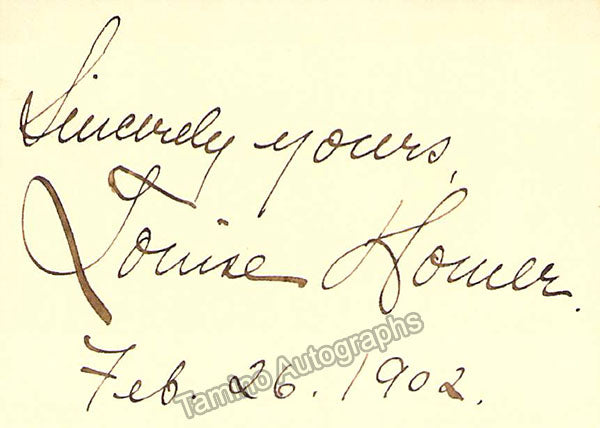 Sincerely yours,
Louise Homer.
Feb. 26. 1902.
Tamino Autographs